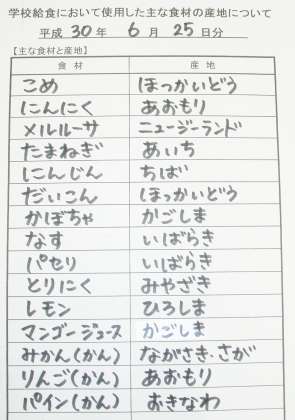 学校給食において使用した主な食材の産地について
平成 30 年 6 月 25 日分
【主な食材と産地】
食材 産地
こめ ほっかいどう
にんにく あおもり
メルルーサ ニュージーランド
たまねぎ あいち
にんじん ちば
だいこん ほっかいどう
かぼちゃ かごしま
なす いばらき
パセリ いばらき
とりにく みやざき
レモン ひろしま
マンゴージュース かごしま
みかん(かん) ながさき・さが
りんご(かん) あおもり
パイン(かん) おきなわ